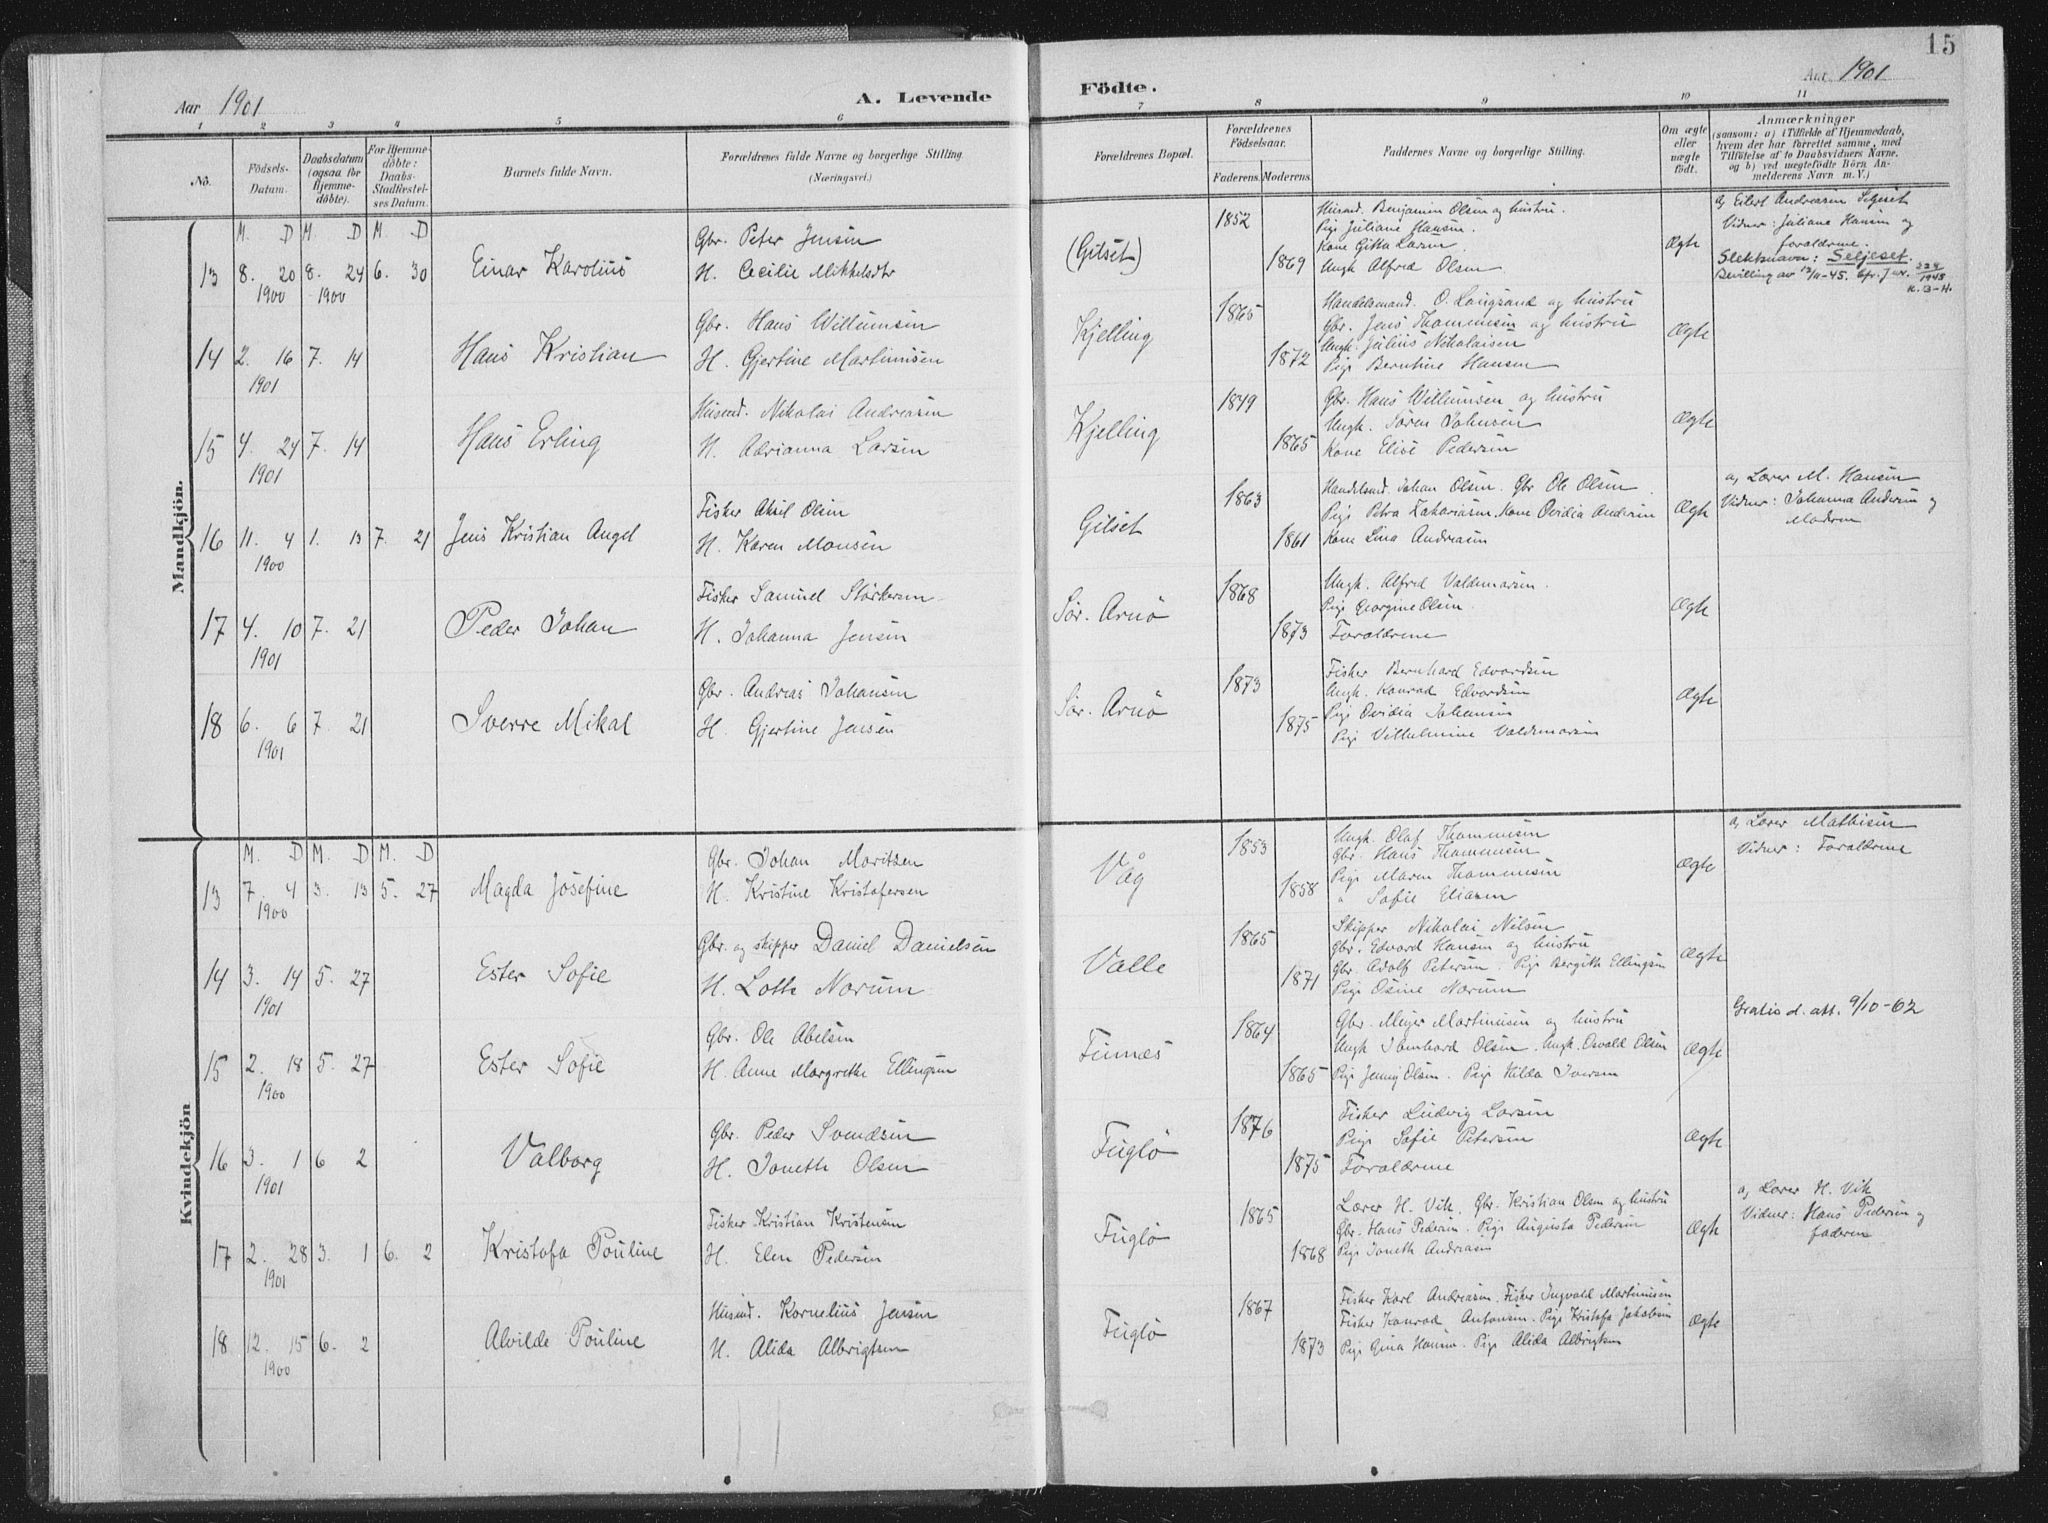 15
Aar 1901
A. Levende
Födte.
Aar 1901
1 2 3 4 5 6 7 8 9 10 11
No.
Födsels-Datum.
Daabsdatum (ogsaa for Hjemmedöbte).
For Hjemmedöbte: Daabs-Stadfestelses Datum.
Barnets fulde Navn.
Forældrenes fulde Navne og borgerlige Stilling.
(Næringsvei.)
Forældrenes Bopæl.
Forældrenes Födselsaar.
Faderens. Moderens.
Faddernes Navne og borgerlige Stilling.
Om ægte eller uægte födt.
Anmærkninger
(saasom: a) i Tilfælde af Hjemmedaab, hvem der har forrettet samme, med Tilföielse af to Daabsvidners Navne, og b) ved uægtefödte Börn Anmelderens Navn m. V.)
Mandkjön.
M. D M. D M. D
13 8. 20 1900 8. 24 1900 6. 30 Einar Karolius
Gbr. Peter Jensen
H. Cecilie Mikkelsdtr
(Gilset) 1852 1869
Husmd. Benjamin Olsen og hustru.
Pige Juliane Hansen.
Kone Gitta Larsen.
Ungk Alfred Olsen
Ægte
a, Eilert Andreasen Seljeset
Vidner: Juliane Hansen og
forældrene.
Slektsnavn: Seljeset.
Bevilling av 13/11-45. Cfr. J nr. 228/1945
14 2. 16 1901 7. 14 Hans Kristian
Gbr. Hans Willumsen
H. Gjertine Martinusen
Kjelling 1865 1872
Handelsmand. O. Langsand og hustru
Gbr. Jens Thommesen og hustru
Ungk. Julius Nikolaisen
Pige Berntine Hansen
Ægte
15 4. 24 1901 7. 14 Hans Erling
Husmd. Nikolai Andreasen
H. Adrianna Larsen
Kjelling 1849 1865
Gbr. Hans Willumsen og hustru
Ungk. Sören Johnsen
Kone Elise Pedersen
Ægte
16 11. 4 1900 1. 13 7. 21 Jens Kristian Angel
Fisker Aksil Olsen
H. Karen Monsen
Gilset 1863 1861
Handelsmd. Johan Olsen. Gbr Ole Olsen
Pige Petra Zakariasen. Kone Ovidia Andersen
Kone Lina Andreasen
Ægte
a, Lærer M. Hansen
Vidner: Johanna Andersen og
Modren
17 4. 10 1901 7. 21 Peder Johan
Fisker Samuel Störkersen
H. Johanna Jensen
Sör. Arnö 1868 1873
Ungk. Alfred Valdemarsen.
Pige Georgine Olsen.
Forældrene
Ægte
18 6. 6 1901 7. 21 Sverre Mikal
Gbr. Andreas Johansen
H. Gjertine Jensen
Sör. Arnö 1873 1875
Fisker Bernhard Edvardsen
Ungk. Konrad Edvardsen
Pige Ovidia Johansen
Pige Vilhelmine Valdemarsen
Ægte
Kvindekjön
M. D M. D M. D
13 7. 4 1900 3. 13 5. 27 Magda Josefine
Gbr. Johan Moritzen
H. Kristine Kristofersen
Våg 1853 1858
Ungk. Olaf Thommesen
Gbr. Hans Thommesen
Pige Maren Thommesen
" Sofie Eliasen
Ægte
a, Lærer Mathisen
Vidner: Forældrene
14 3. 14 1901 5. 27 Ester Sofie
Gbr. og skipper Daniel Danielsen
H. Lotte Norum
Valle 1865 1871
Skipper Nikolai Nilsen
Gbr. Edvard Hansen og hustru
Gbr. Adolf Petersen. Pige Bergith Ellingsen
Pige Osine Norum
Ægte
15 2. 18 1900 5. 27 Ester Sofie
Gbr. Ole Abelsen
H. Anne Margrethe Ellingsen
Finnæs 1864 1865
Gbr. Meyer Martinusen og hustru
Ungk Olsen. Ungk. Osvald Olsen
Pige Jenny Olsen. Pige Hilda Iversen
Ægte
Gratis d. att. 9/10-62
16 3. 1 1901 6 2 Valborg
Gbr. Peder Svendsen
H. Jonette Olsen
Fuglö 1876 1875
Fisker Ludvig Larsen
Pige Sofie Petersen
Forældrene
Ægte
17 2. 28 1901 3. 1 6. 2 Kristofa Pouline
Fisker Kristian Kristensen
H. Elen Pedersen
Fuglö 1865 1868
Lærer H. Vik. Gbr. Kristian Olsen og hustru
Gbr. Hans Pedersen. Pige Augusta Pedersen
Pige Joneth Andreasen
Ægte
a, Lærer H. Vik
Vidner: Hans Pedersen og
faderen
18 12. 15 1900 6. 2 Alvilde Pouline
Husmd. Kornelius Jensen
H. Alida Albrigtsen
Fuglö 1867 1873
Fisker Karl Andreasen. Fisker Ingvald Martinusen
Fisker Konrad Antonsen. Pige Kristofa Jakobsen
Pige Gina Hansen. Pige Alida Albrigtsen
Ægte